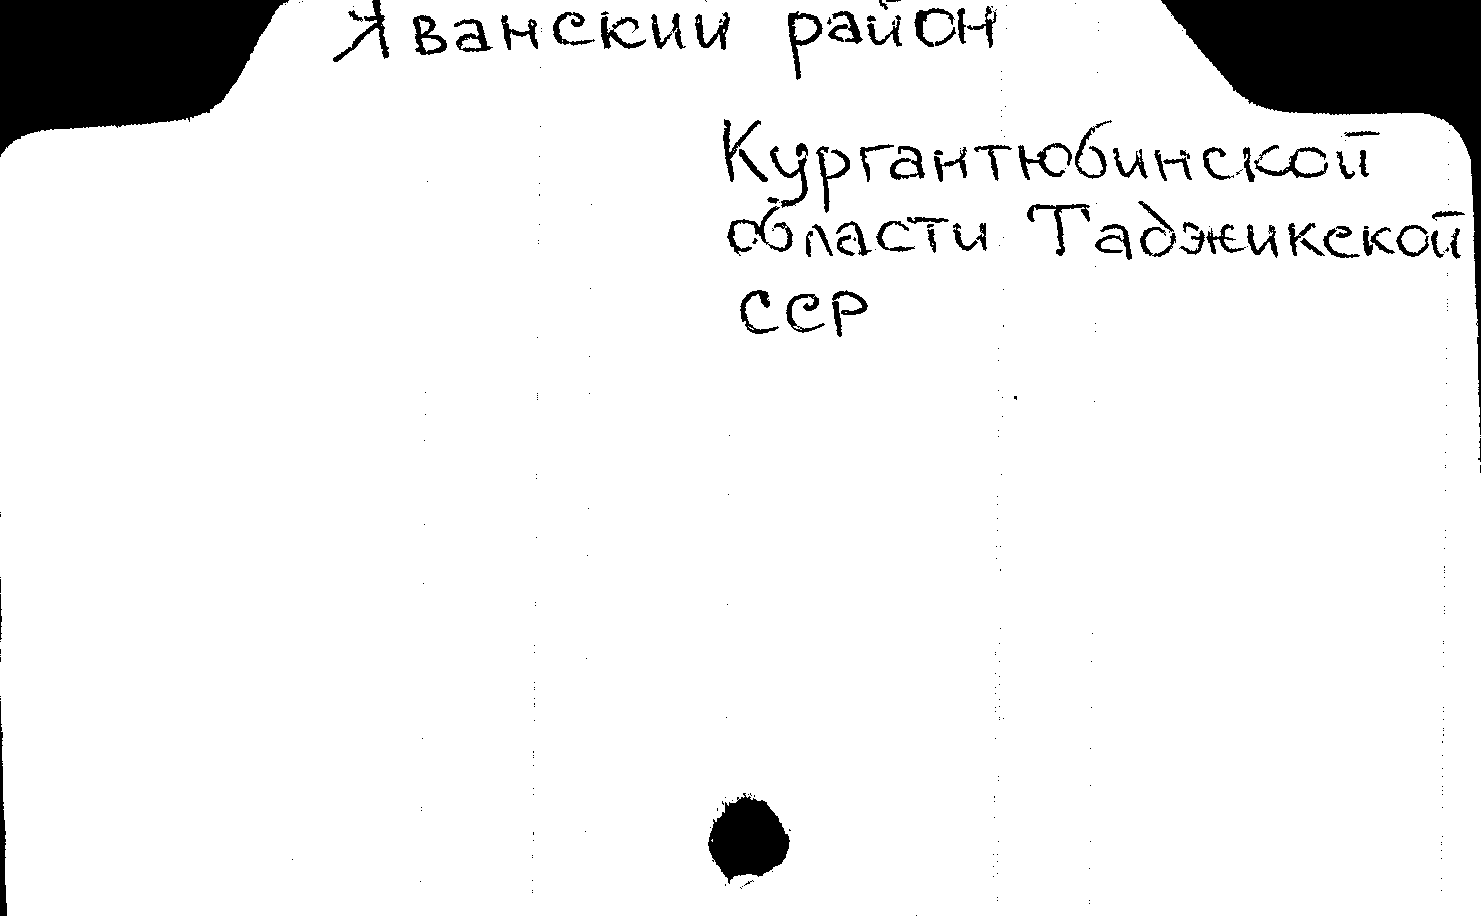 Яванский район
Кургантюбинской
области Таджикской
ССР